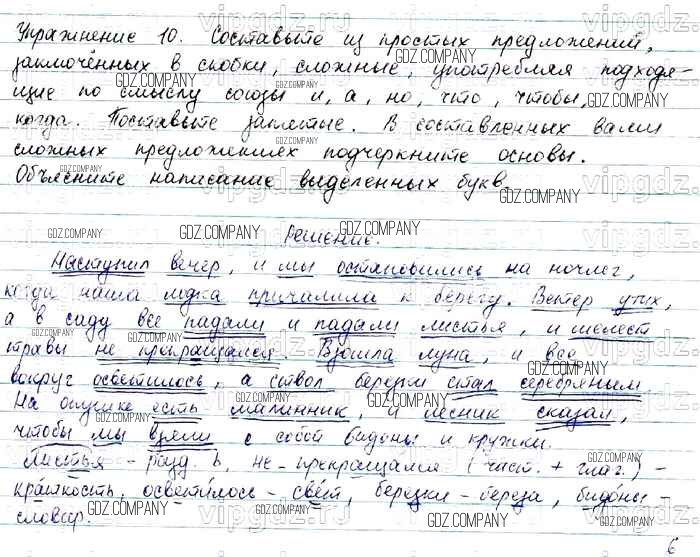 Упражнение 10. Составьте из простых предложений,
заключённых в скобки, сложные, употребляя подходя-
щие по смыслу союзы и, а, но, что, чтобы,
когда. Поставьте запятые. В составленных вами
сложных предложениях подчеркните основы.
Объясните написание выделенных букв.
Решение.
Наступил вечер, и мы остановились на ночлег,
когда наша лодка причалила к берегу. Ветер утих,
а в саду все падали и падали листья, и шелест
травы не прекращался. Взошла луна, и все
вокруг осветилось, а ствол березы стал серебряным
На опушке есть малинник, и лесник сказал,
чтобы мы взяли с собой бидоны и кружки.
Листья - разд. ь, не - прекращался (част. + глаг.) -
кра́ткость, осветилось - свет, березки - береза, бидоны -
словар.
6
GDZ.COMPANY
vipgdz.ru